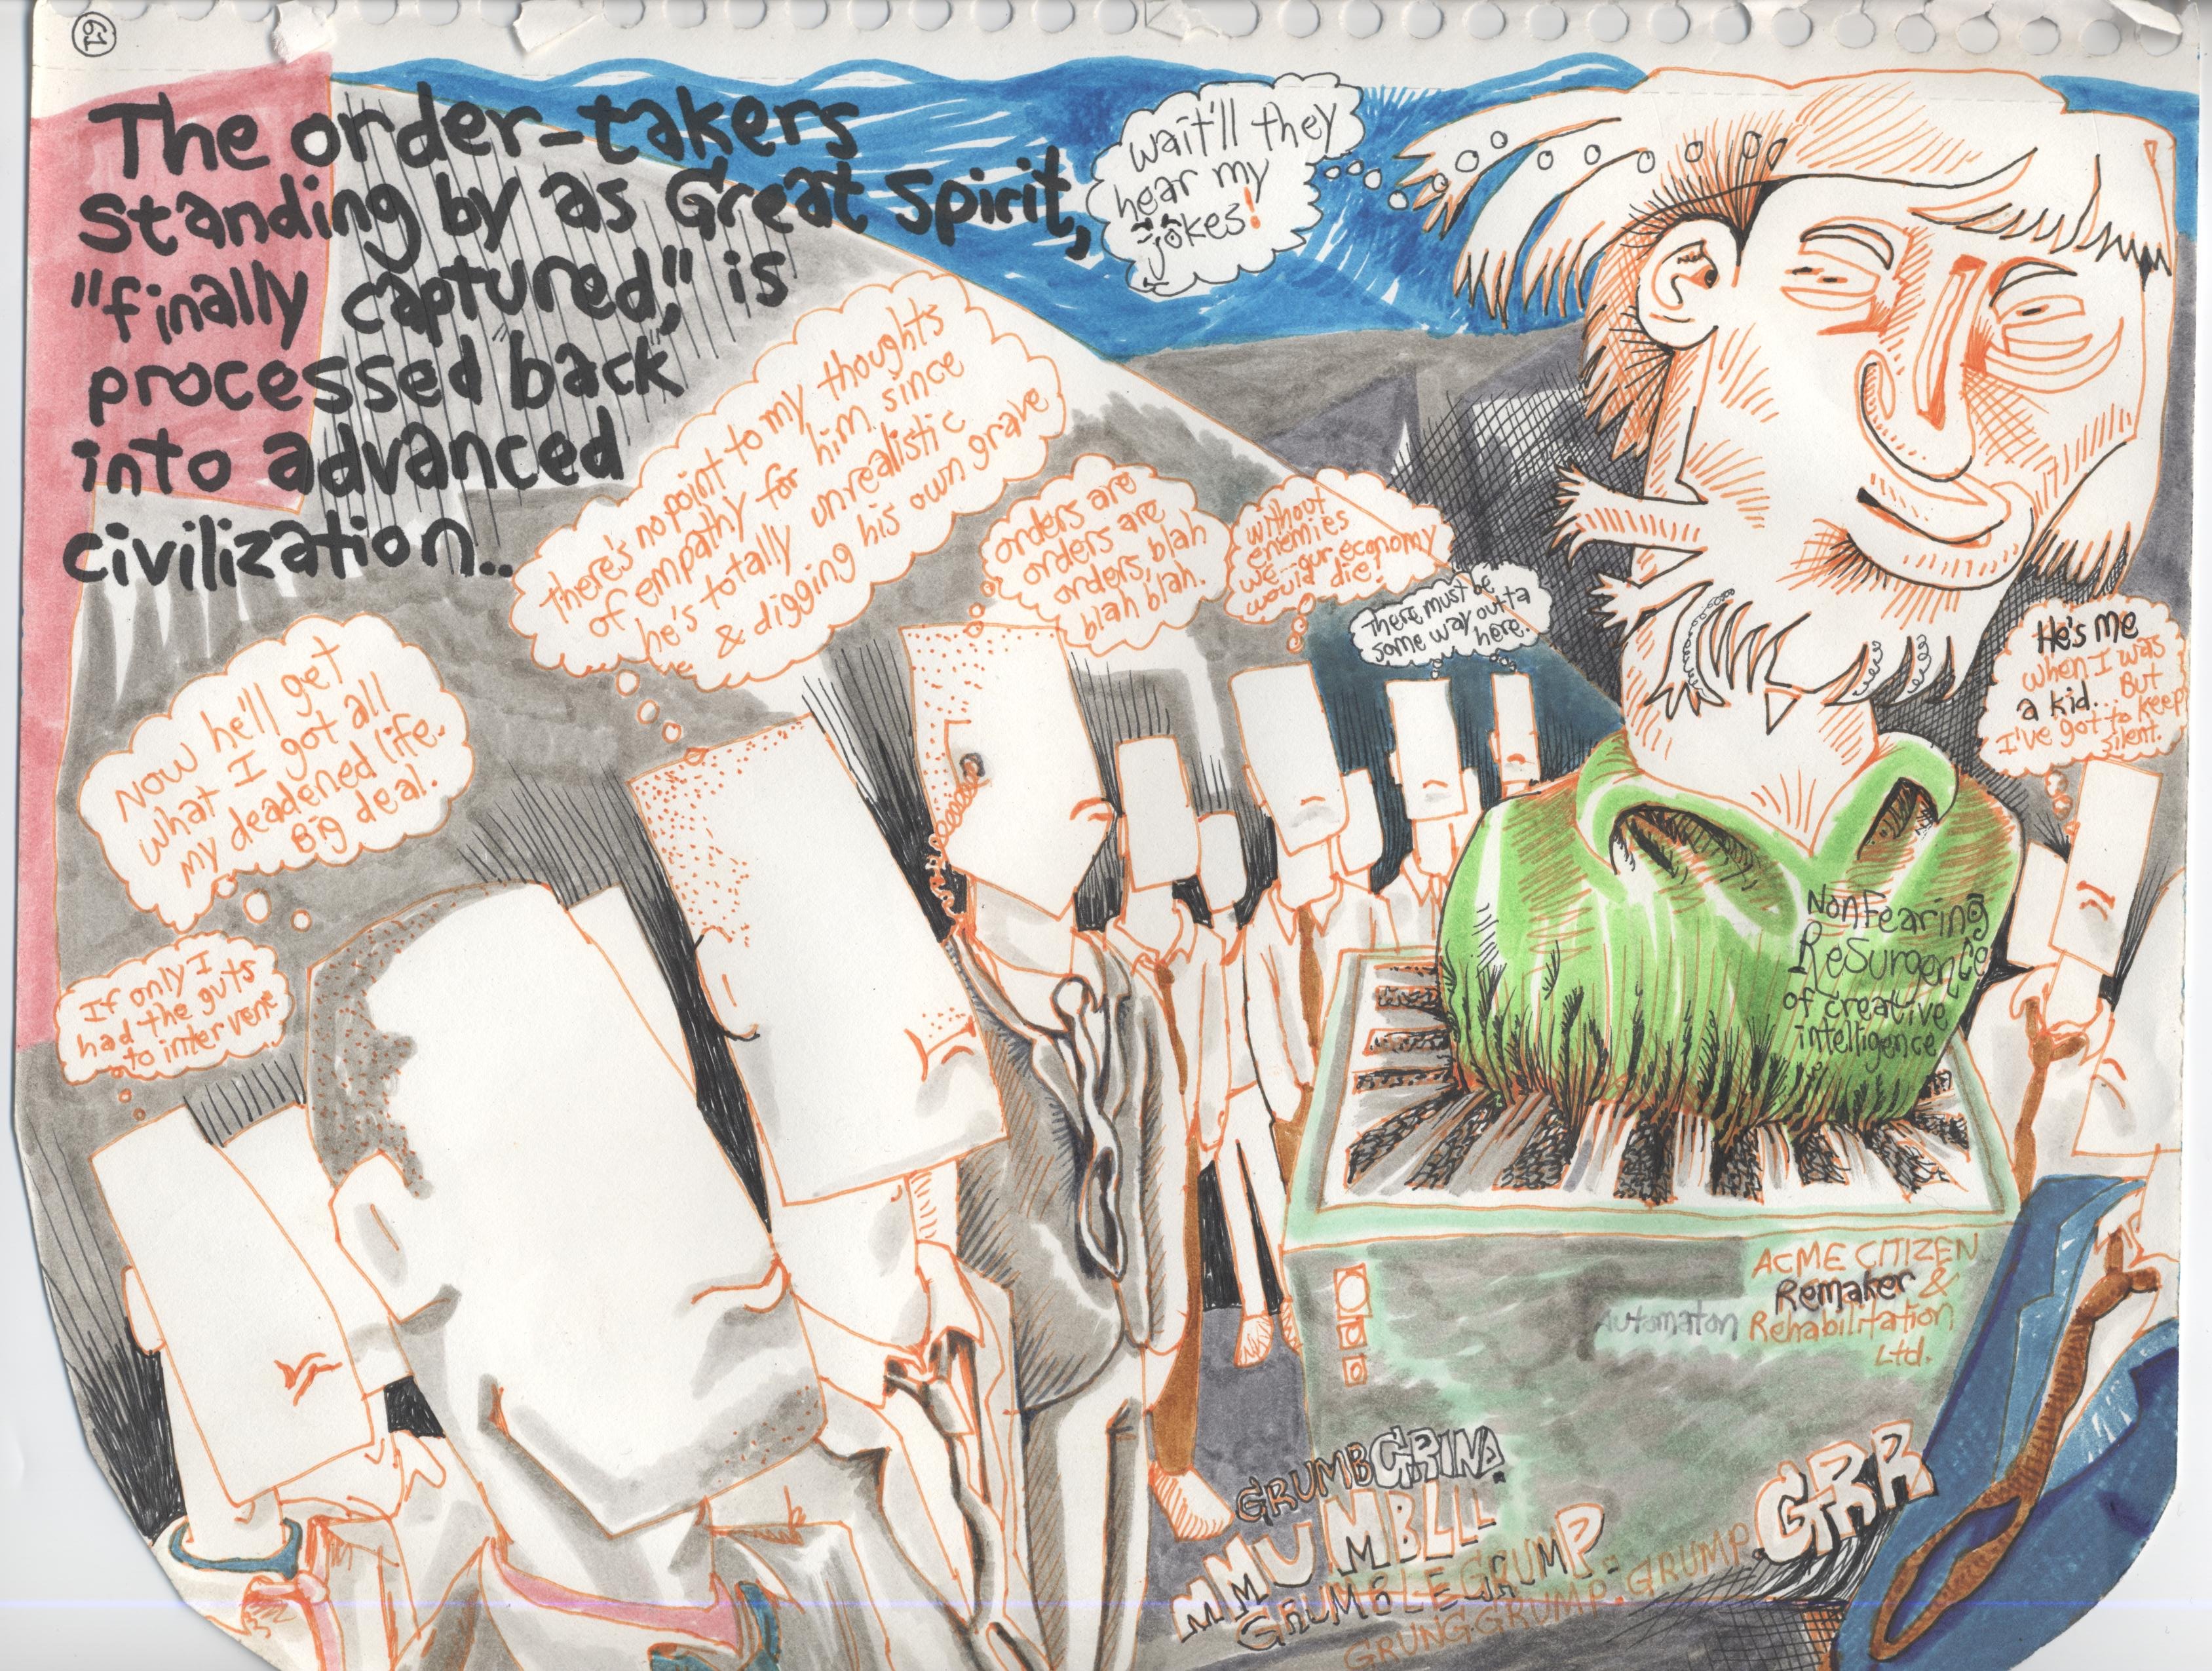 61
The order-takers
standing by as Great Spirit,
"finally captured," is
processed "back"
into advanced
civilization..
wait'll they
hear my
jokes!
there's no point to my thoughts
of empathy for him since
he's totally unrealistic
& digging his own grave
orders are
orders are
orders, blah
blah blah.
without
enemies
we...our economy
would die!
There must be
some way outta
here.
He's me
when I was
a kid... But
I've got to keep
silent.
Now he'll get
what I got all
my deadened life.
Big deal.
If only I
had the guts
to intervene
NonFearing
ReSurgence
of creative
intelligence
ACME CITIZEN
Remaker &
Automaton Rehabilitation
Ltd.
GRUMBGRIND
MMMUMBLLL
GRUMBLEGRUMP
GRUNG.GRUMP.GRUMP.
GRR